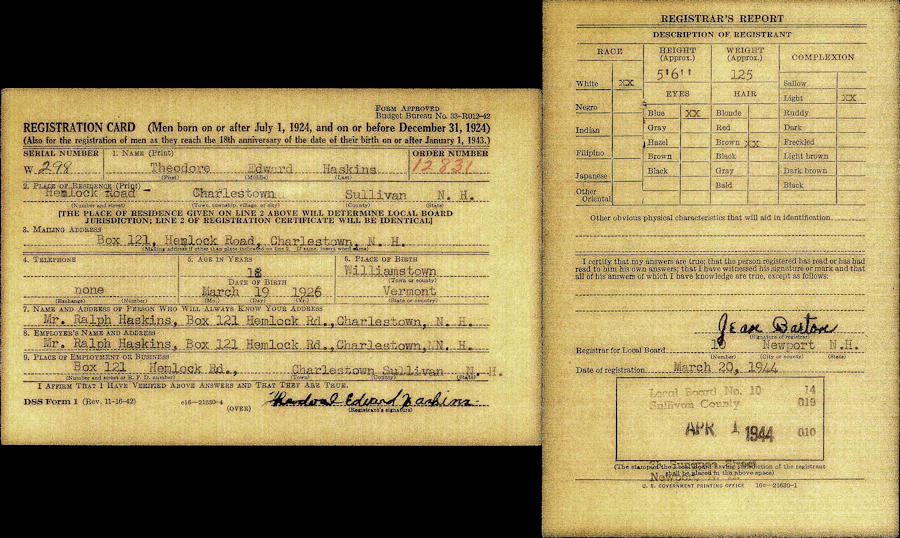 FORM APPROVED
Budget Bureau No. 33-R012-42
REGISTRATION CARD (Men born on or after July 1, 1924, and on or before December 31, 1924)
(Also for the registration of men as they reach the 18th anniversary of the date of their birth on or after January 1, 1943.)
SERIAL NUMBER 1. NAME (Print) ORDER NUMBER
W. 298 Theodore Edward Haskins 12831
(First) (Middle) (Last)
2. PLACE OF RESIDENCE (Print)
Hemlock Road - Charlestown Sullivan N. H.
(Number and street) (Town, township, village, or city) (County) (State)
[THE PLACE OF RESIDENCE GIVEN ON LINE 2 ABOVE WILL DETERMINE LOCAL BOARD
JURISDICTION; LINE 2 OF REGISTRATION CERTIFICATE WILL BE IDENTICAL]
3. MAILING ADDRESS
Box 121, Hemlock Road, Charlestown, N. H.
(Mailing address if other than place indicated on line 2. If same, insert word same)
4. TELEPHONE 5. AGE IN YEARS 6. PLACE OF BIRTH
18 Williamstown
DATE OF BIRTH (Town or county)
none March 19 1926 Vermont
(Exchange) (Number) (Mo.) (Day) (Yr.) (State or country)
7. NAME AND ADDRESS OF PERSON WHO WILL ALWAYS KNOW YOUR ADDRESS
Mr. Ralph Haskins, Box 121 Hemlock Rd.,Charlestown, N. H.
8. EMPLOYER'S NAME AND ADDRESS
Mr. Ralph Haskins, Box 121 Hemlock Rd.,Charlestown,NN. H.
9. PLACE OF EMPLOYMENT OR BUSINESS
Box 121 Hemlock Rd., Charlestown Sullivan N. H.
(Number and street or R. F. D. number) (Town) (County) (State)
I AFFIRM THAT I HAVE VERIFIED ABOVE ANSWERS AND THAT THEY ARE TRUE.
DSS Form 1 (Rev. 11-16-42) 16-21630-4 Edward Haskins
(OVER) (Registrant's signature)
REGISTRAR'S REPORT
DESCRIPTION OF REGISTRANT
RACE HEIGHT (Approx.) WEIGHT (Approx.) COMPLEXION
5'6" 125
White XX Sallow
EYES HAIR Light XX
Negro Blue XX Blonde Ruddy
Indian Gray Red Dark
Hazel Brown XX Freckled
Filipino Brown Black Light brown
Japanese Black Gray Dark brown
Other Oriental Bald Black
Other obvious physical characteristics that will aid in identification
I certify that my answers are true; that the person registered has read or has had
read to him his own answers; that I have witnessed his signature or mark and that
all of his answers of which I have knowledge are true, except as follows:
Jean Barton
(Signature of registrar)
Registrar for Local Board 10 Newport N.H.
(Number) (City or county) (State)
Date of registration March 20, 1944
Local Board No. 10 14
Sullivan County 019
APR 1 1944 010
(The stamp of the Local Board having jurisdiction of the registrant
shall be placed in the above space)
Newport N. H.
U. S. GOVERNMENT PRINTING OFFICE 16-21630-1